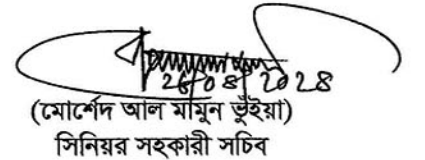 26/08/2028
(মোর্শেদ আল মামুন ভূঁইয়া)
সিনিয়র সহকারী সচিব